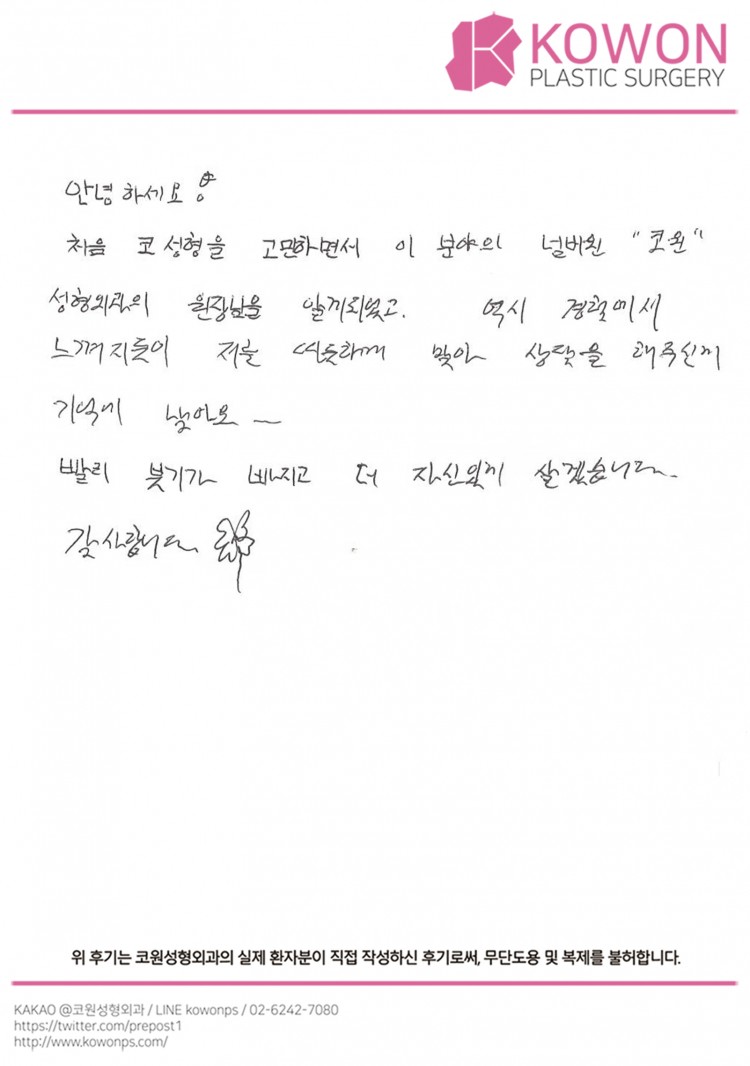 KOWON
PLASTIC SURGERY
안녕하세요
처음 코 성형을 고민하면서 이 분야의 넘버원 "코원"
성형외과의 원장님을 알게되었고. 역시 경력에서
느껴지듯이 저를 따듯하게 맞아 상담을 해주신게
기억에 남아요 ~
빨리 붓기가 빠지고 더 자신있게 살겠습니다.
감사합니다
위 후기는 코원성형외과의 실제 환자분이 직접 작성하신 후기로써, 무단도용 및 복제를 불허합니다.
KAKAO @코원성형외과 / LINE kowonps / 02-6242-7080
https://twitter.com/prepost1
http://www.kowonps.com/